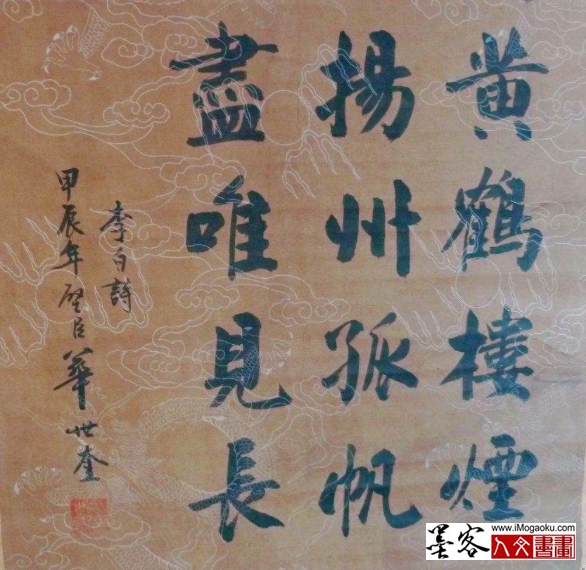 黄鶴樓煙
揚州孤帆
盡唯見長
李白詩
甲辰年 臣華世奎
墨客
www.iMogaoku.com
人文書畫